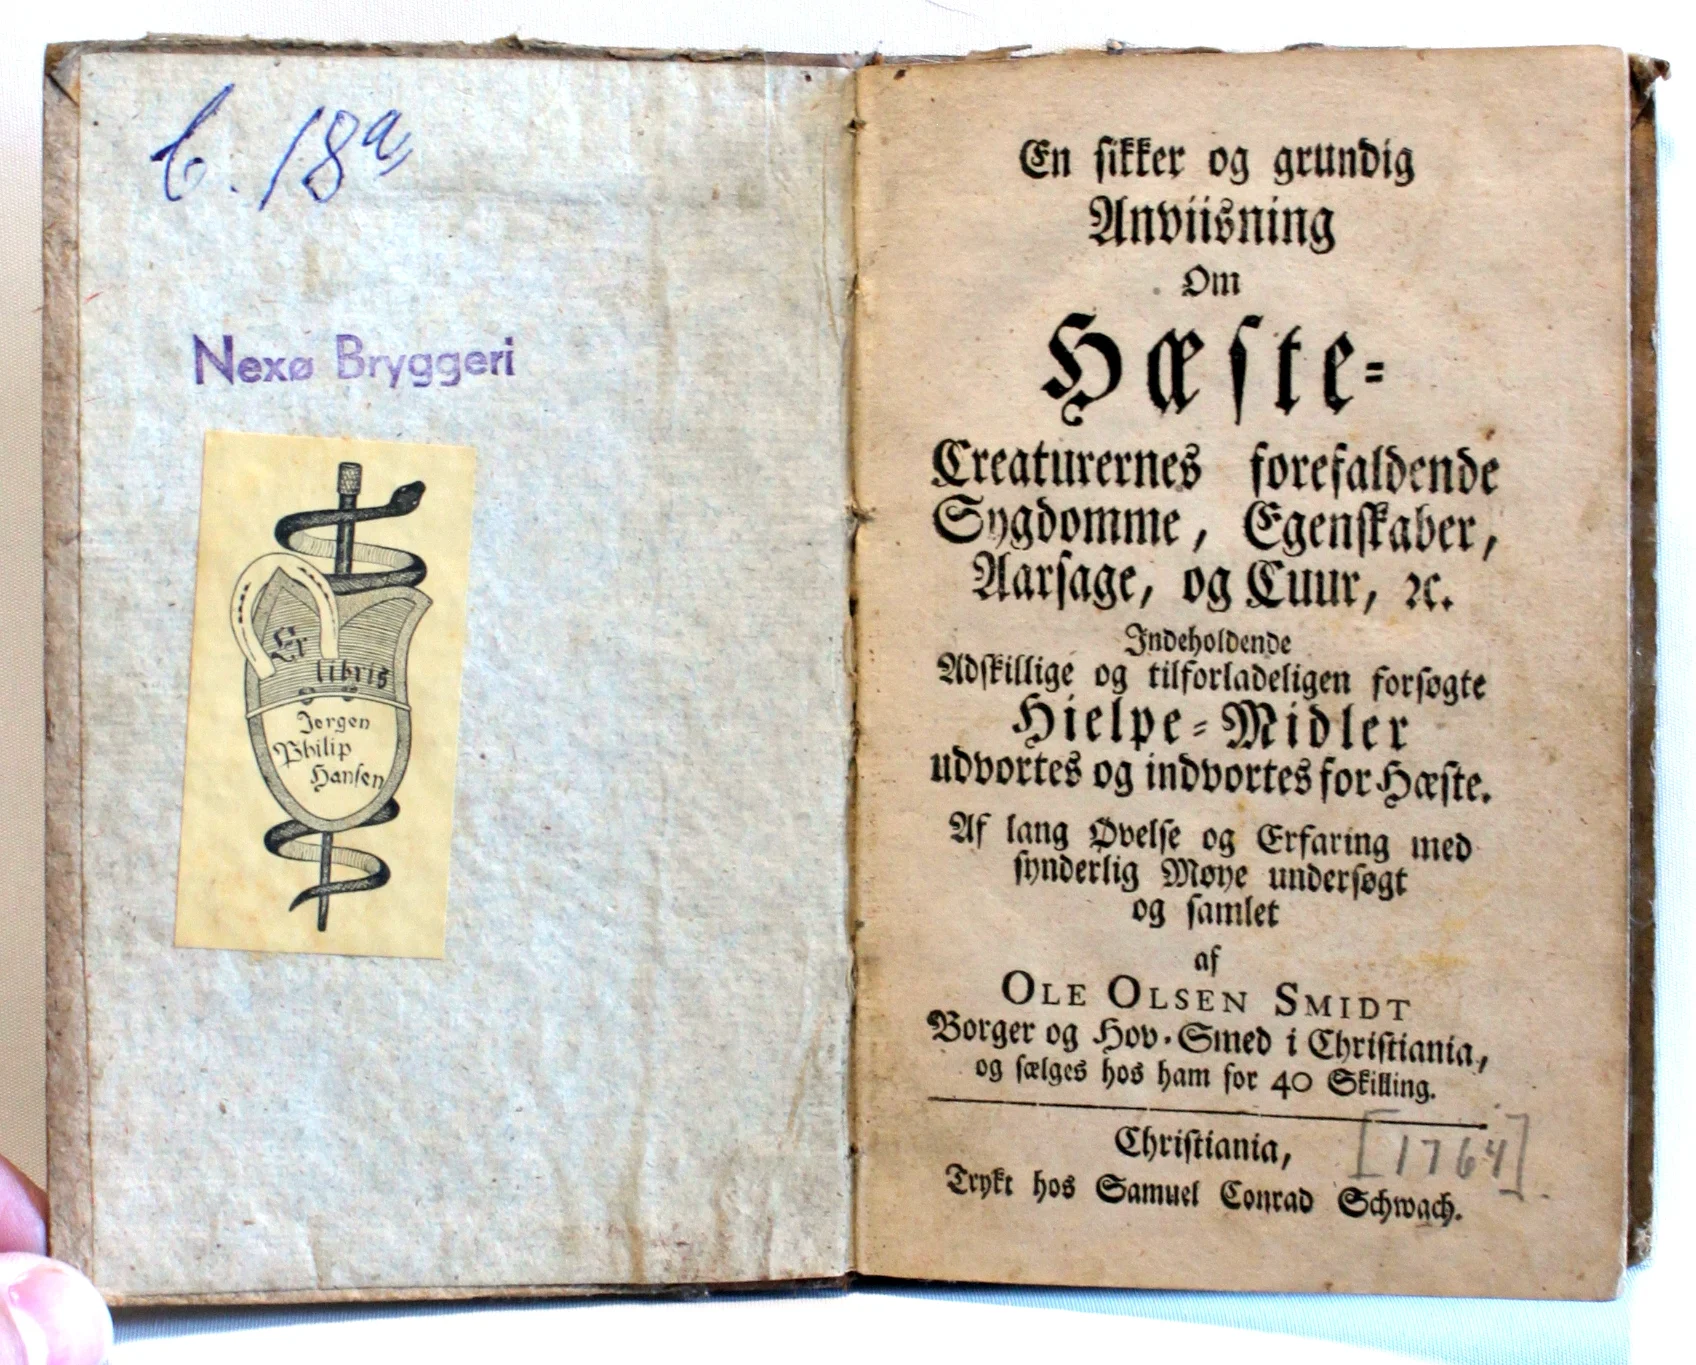 C. 18a
Nexø Bryggeri
Ex
libris
Jørgen
Philip
Hansen
En sikker og grundig
Anviisning
Om
Hæste-
Creaturernes forefaldende
Sygdomme, Egenskaber,
Aarsage, og Cuur, ꝛc.
Indeholdende
Adskillige og tilforladeligen forsøgte
Hielpe-Midler
udvortes og indvortes for Hæste.
Af lang Øvelse og Erfaring med
synderlig Møye undersøgt
og samlet
af
OLE OLSEN SMIDT
Borger og Hov-Smed i Christiania,
og sælges hos ham for 40 Skilling.
Christiania, [1764].
Trykt hos Samuel Conrad Schwach.